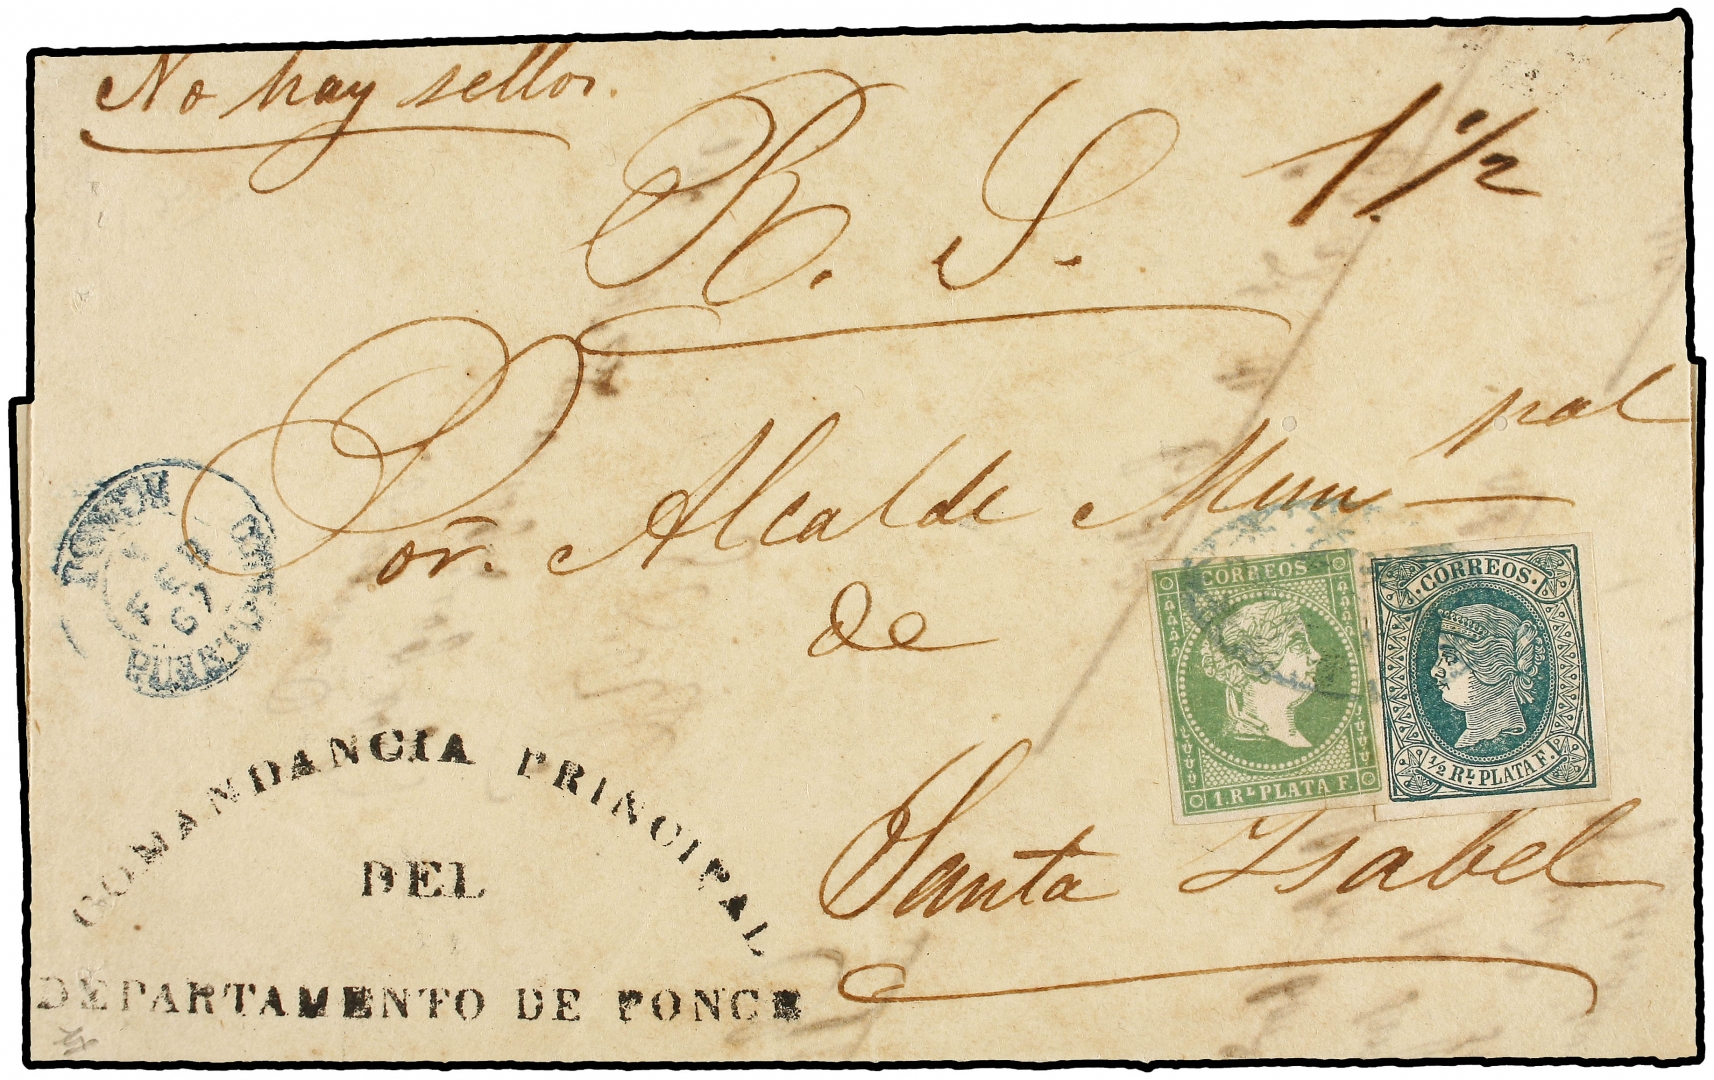 No hay sellos.
R. S. 1 1/2
Sor. Alcalde Mun pal
de
Santa Isabel
FEB
67
CORREOS
1. RL PLATA F.
·CORREOS·
1/2 RL PLATA F.
COMANDANCIA PRINCIPAL
DEL
DEPARTAMENTO DE PONCE